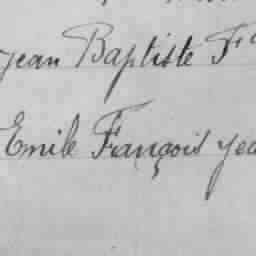 Jean Baptiste F
Emile François Jea